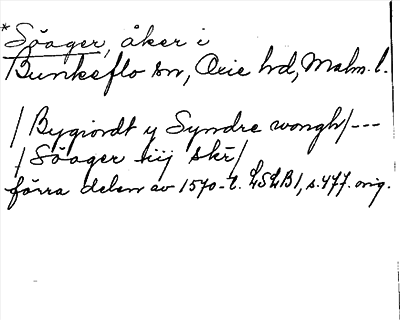 *Söager, åker i
Bunkeflo sn, Oxie hd, Malm. l.
/Bygiordt y Syndre wongh/---
/Söager iiij skr/
förra delen av 1570-t. LSLB1, s. 477. orig.